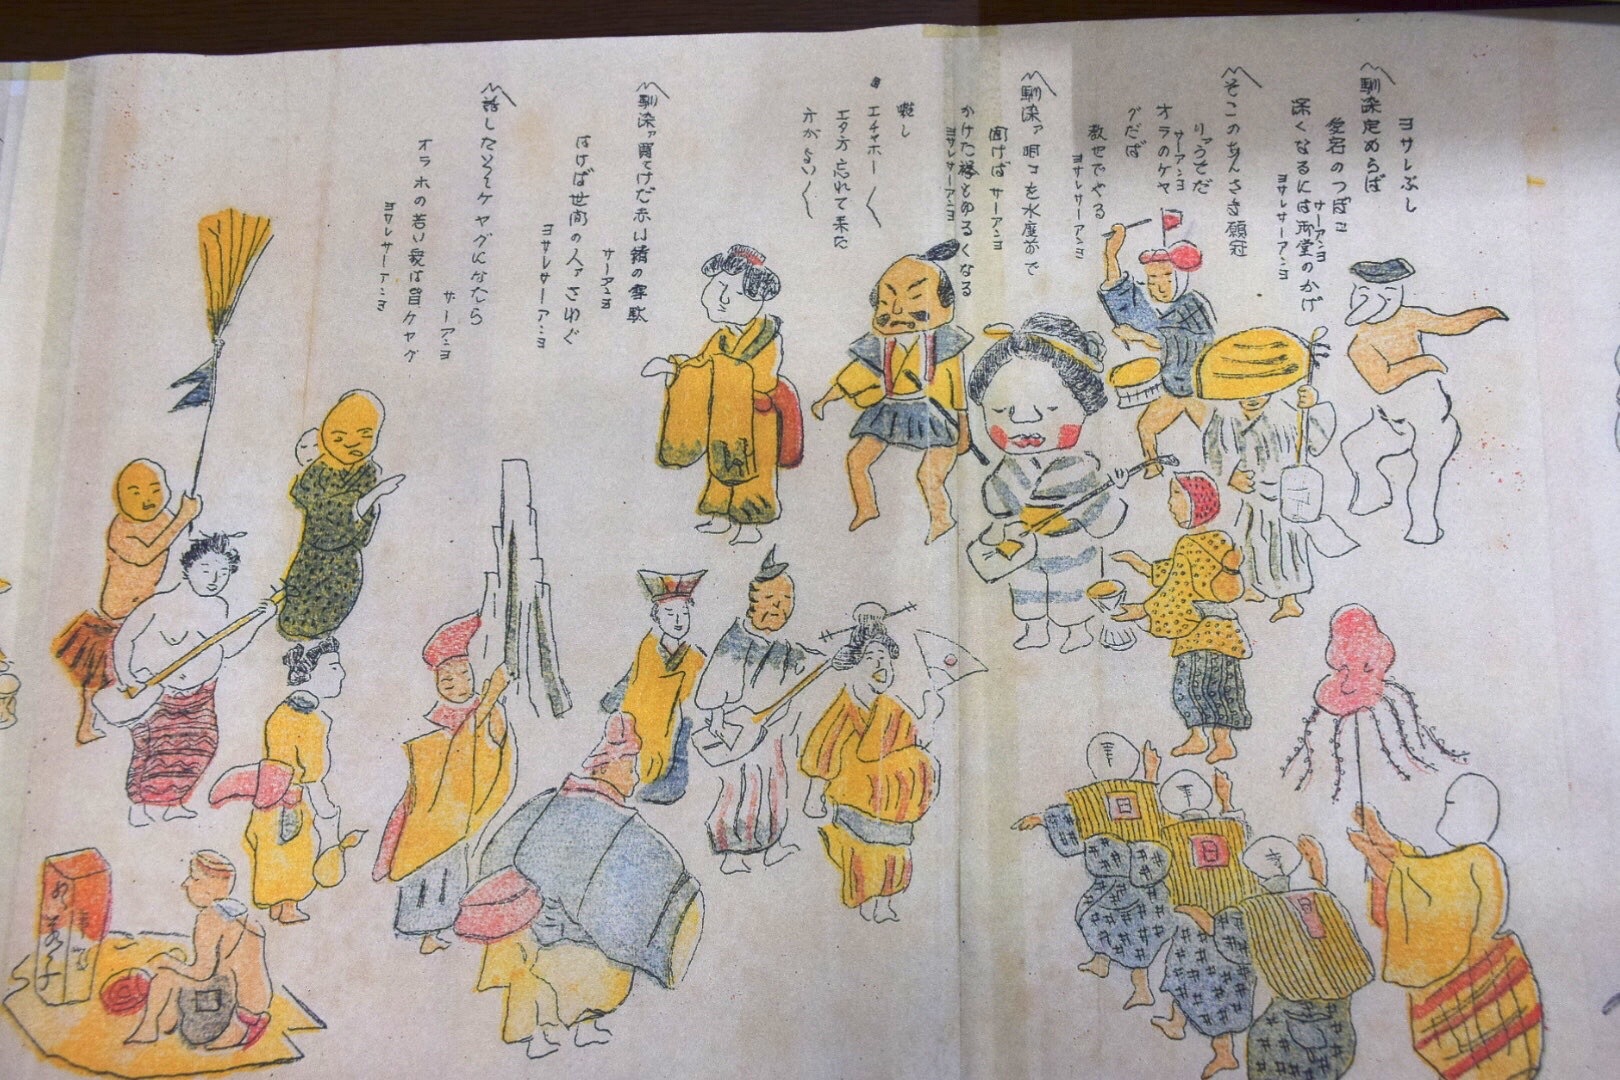 ヨサレぶし
馴染定めらば
愛宕のつぼに
サーアンヨ
深くなるには御堂のかげ
ヨサレサーアンヨ
そこのあんさま頭冠
りァうそだ
サーアンヨ
オラのケヤ
グだば
教せでやる
ヨサレサーアンヨ
馴染ァ唄コを水屋おで
聞けば サーアンヨ
かけた襷もゆるくなる
ヨサレサーアンヨ
囃し
エチャホー
エタ方忘れて来た
オがない
馴染ァ買てけだ赤い緒の雪駄
サーアンヨ
はけば世間の人ァさわぐ
ヨサレサーアンヨ
話したらそケヤグになたら
サーアンヨ
オラホの若い衆は皆ケヤグ
ヨサレサーアンヨ
日
日
日